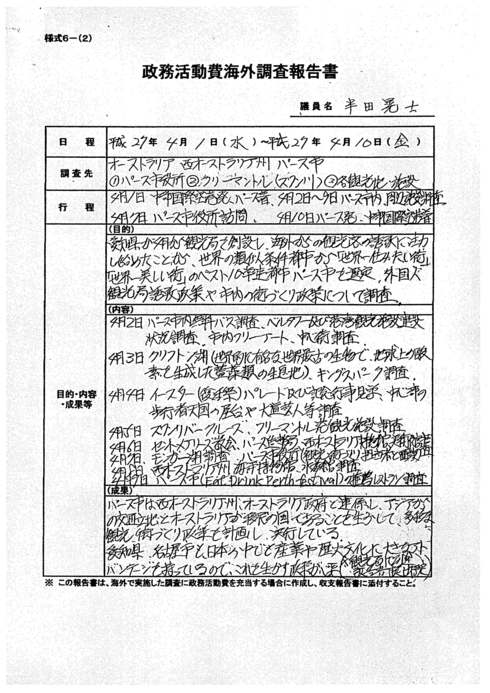 様式6-(2)
政務活動費海外調査報告書
議員名 半田晃士
日程 平成27年4月1日(水)~平成27年4月10日(金)
調査先 オーストラリア 西オーストラリア州 パース市
①パース市役所 ②フリーマントル(スワン川) ③各観光地・施設
行程 4月1日 中部国際空港発、パース着、4月2日~9日 パース市内、周辺施設調査
4月7日 パース市役所訪問、4月10日 パース発、中部国際空港着
目的・内容・成果等
(目的)
愛知県が4月から観光局を創設し、海外からの観光客の誘致に注力
し始めたことから、世界の類似条件都市から「世界一住みたい街」
「世界一美しい街」のベスト10の常連都市パース市を選定、外国人
観光局誘致政策や市内の街づくり政策について調査
(内容)
4月2日 パース市内無料バス調査、ベルタワー及び港湾観光施設建設
状況調査、市内フリーアート、中心街調査
4月3日 クリフトン湖
キングスパーク調査
4月4日 イースター(復活祭)パレード及び
歩行者天国の屋台や大道芸人等調査
4月5日 スワンリバークルーズ、フリーマントル港観光施設調査
4月6日 セントメアリーズ教会、パース
4月7日 モンガー湖調査、パース市役所
4月8日 西オーストラリア州
4月9日 パース市内(Eat Drink Perth festival) レストラン調査
(成果)
パース市は西オーストラリア州、オーストラリア政府と連係し、アジアから
の交通立地とオーストラリアが移民の国であることを生かして、多様な
観光、街づくり政策を計画し、実行している。
愛知県、名古屋市も日本の中でも産業や歴史文化に大きなアド
バンテージを持っているので、これを生かす政策が必要
※ この報告書は、海外で実施した調査に政務活動費を充当する場合に作成し、収支報告書に添付すること。